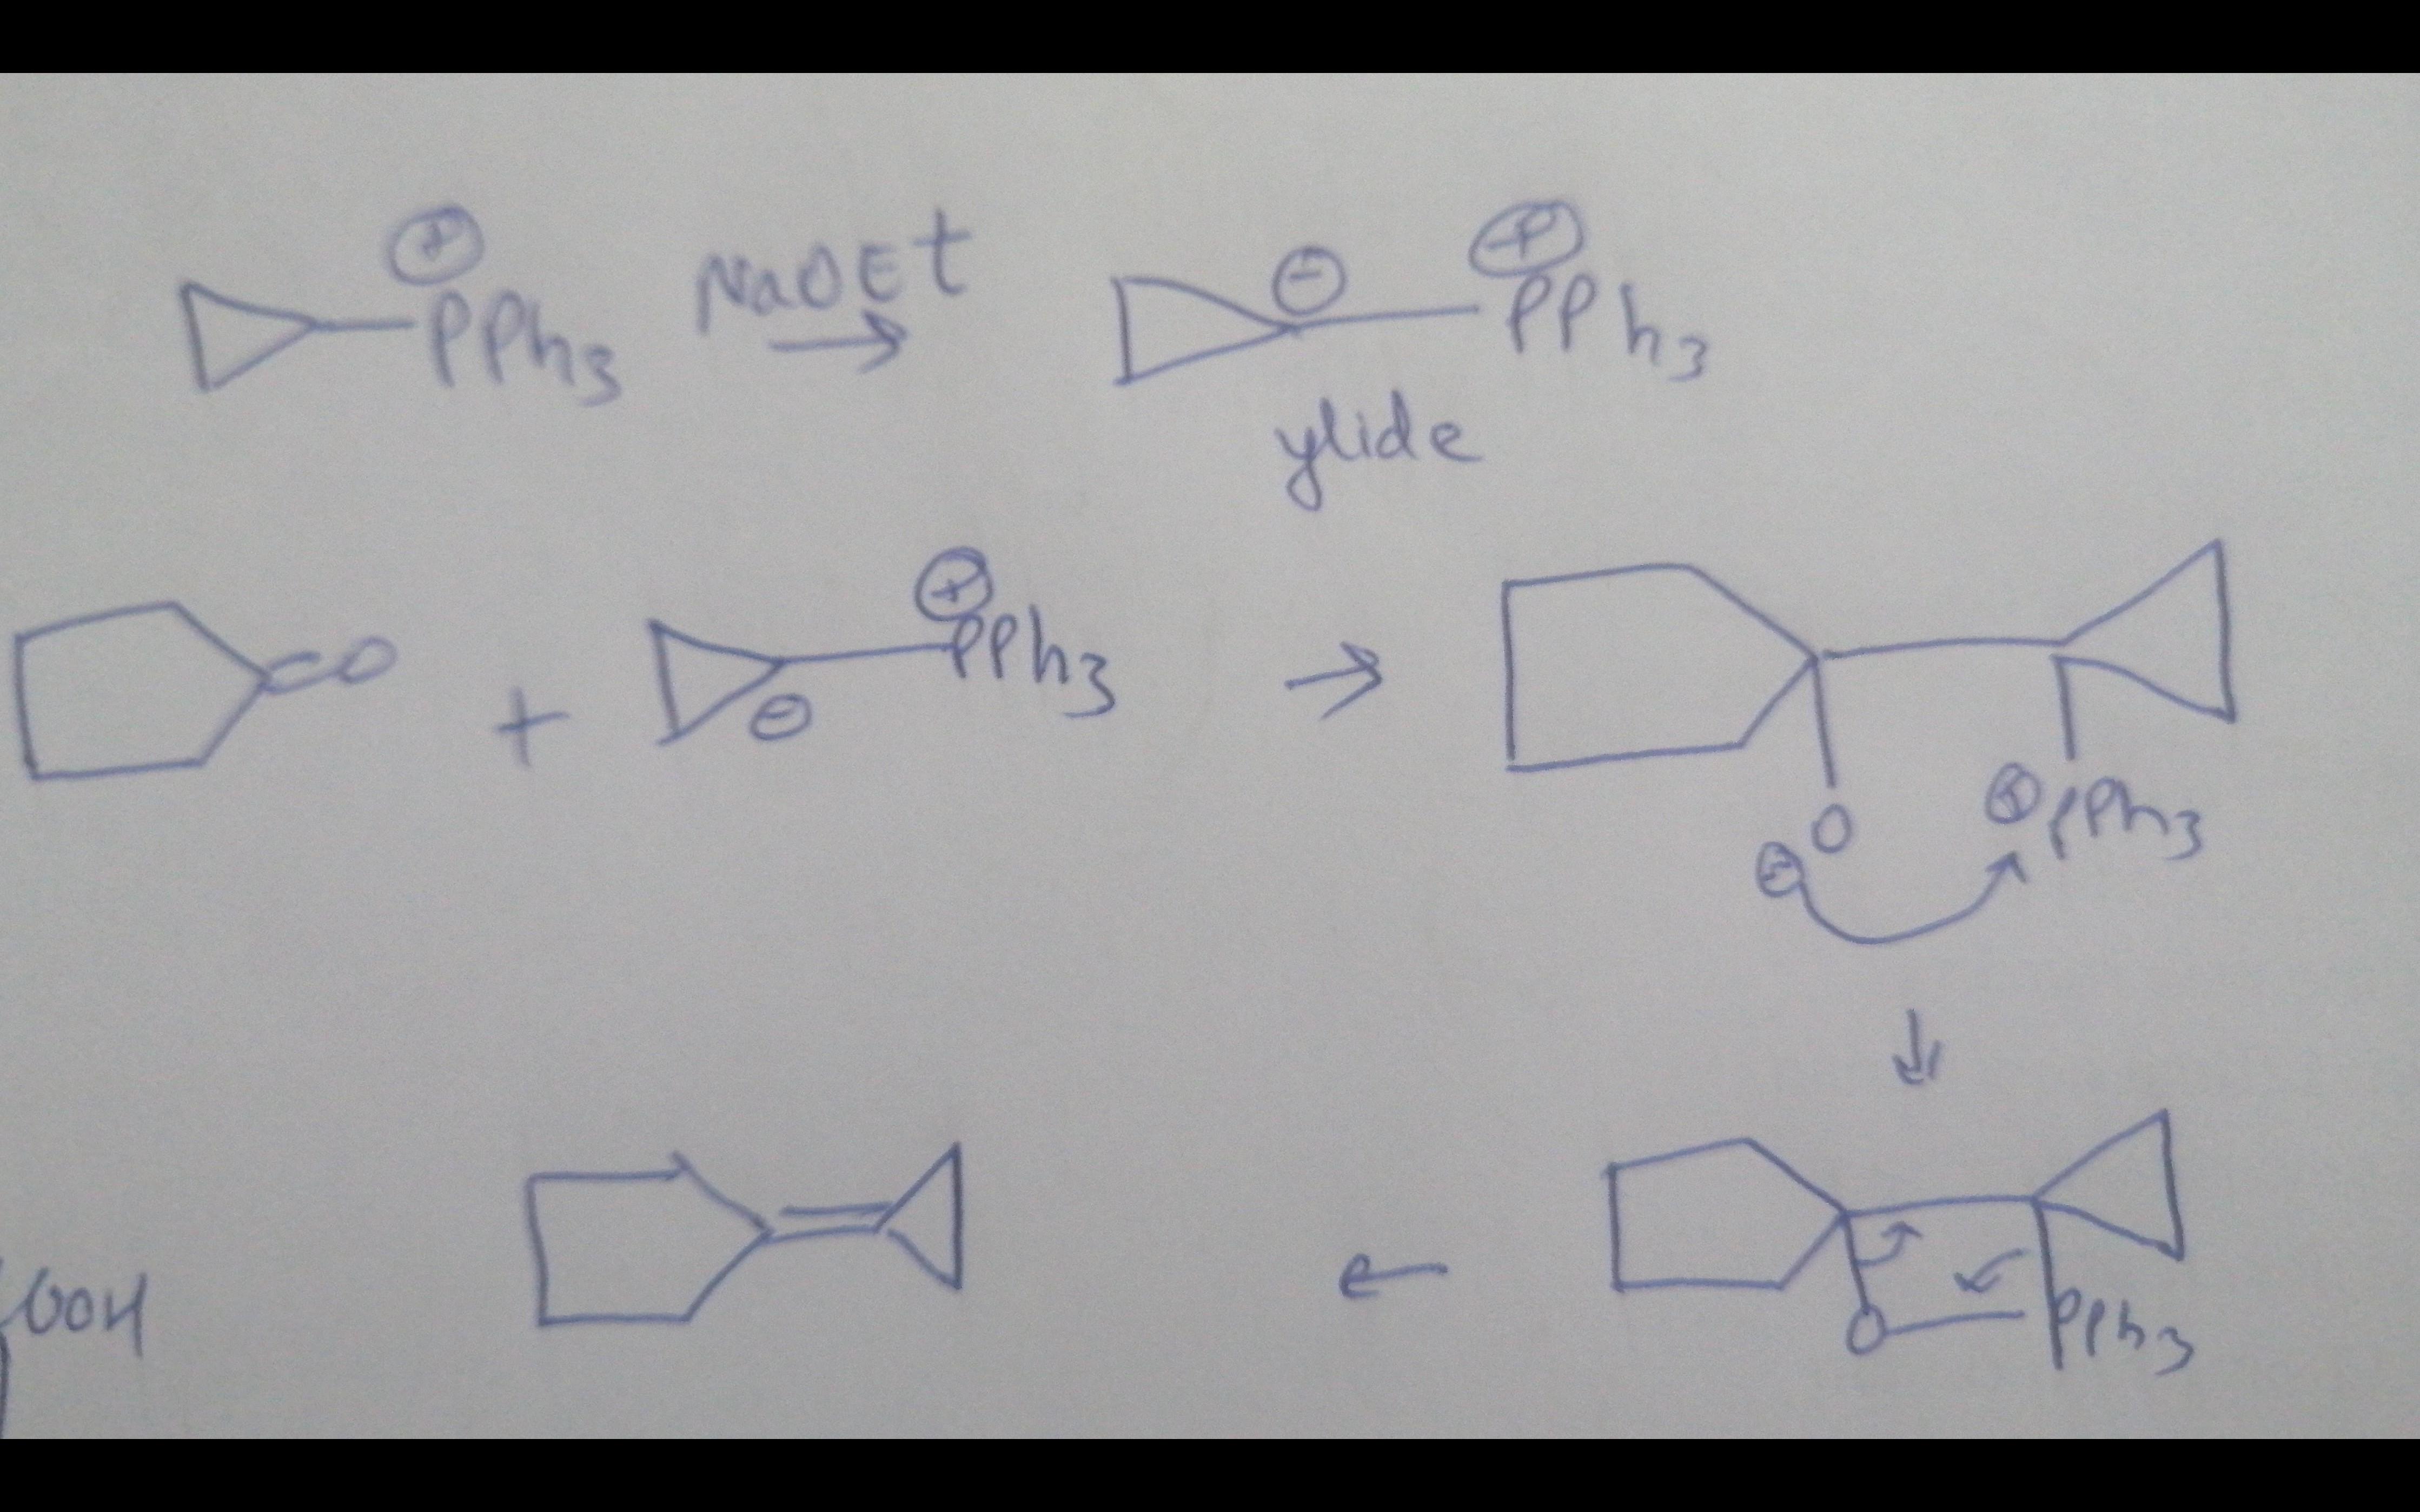 ⊕
PPh3 NaOEt → ⊖ ⊕ PPh3
ylide
=O + ⊖ ⊕ PPh3 → O ⊖ ⊕ PPh3
↓
← O PPh3
OOH